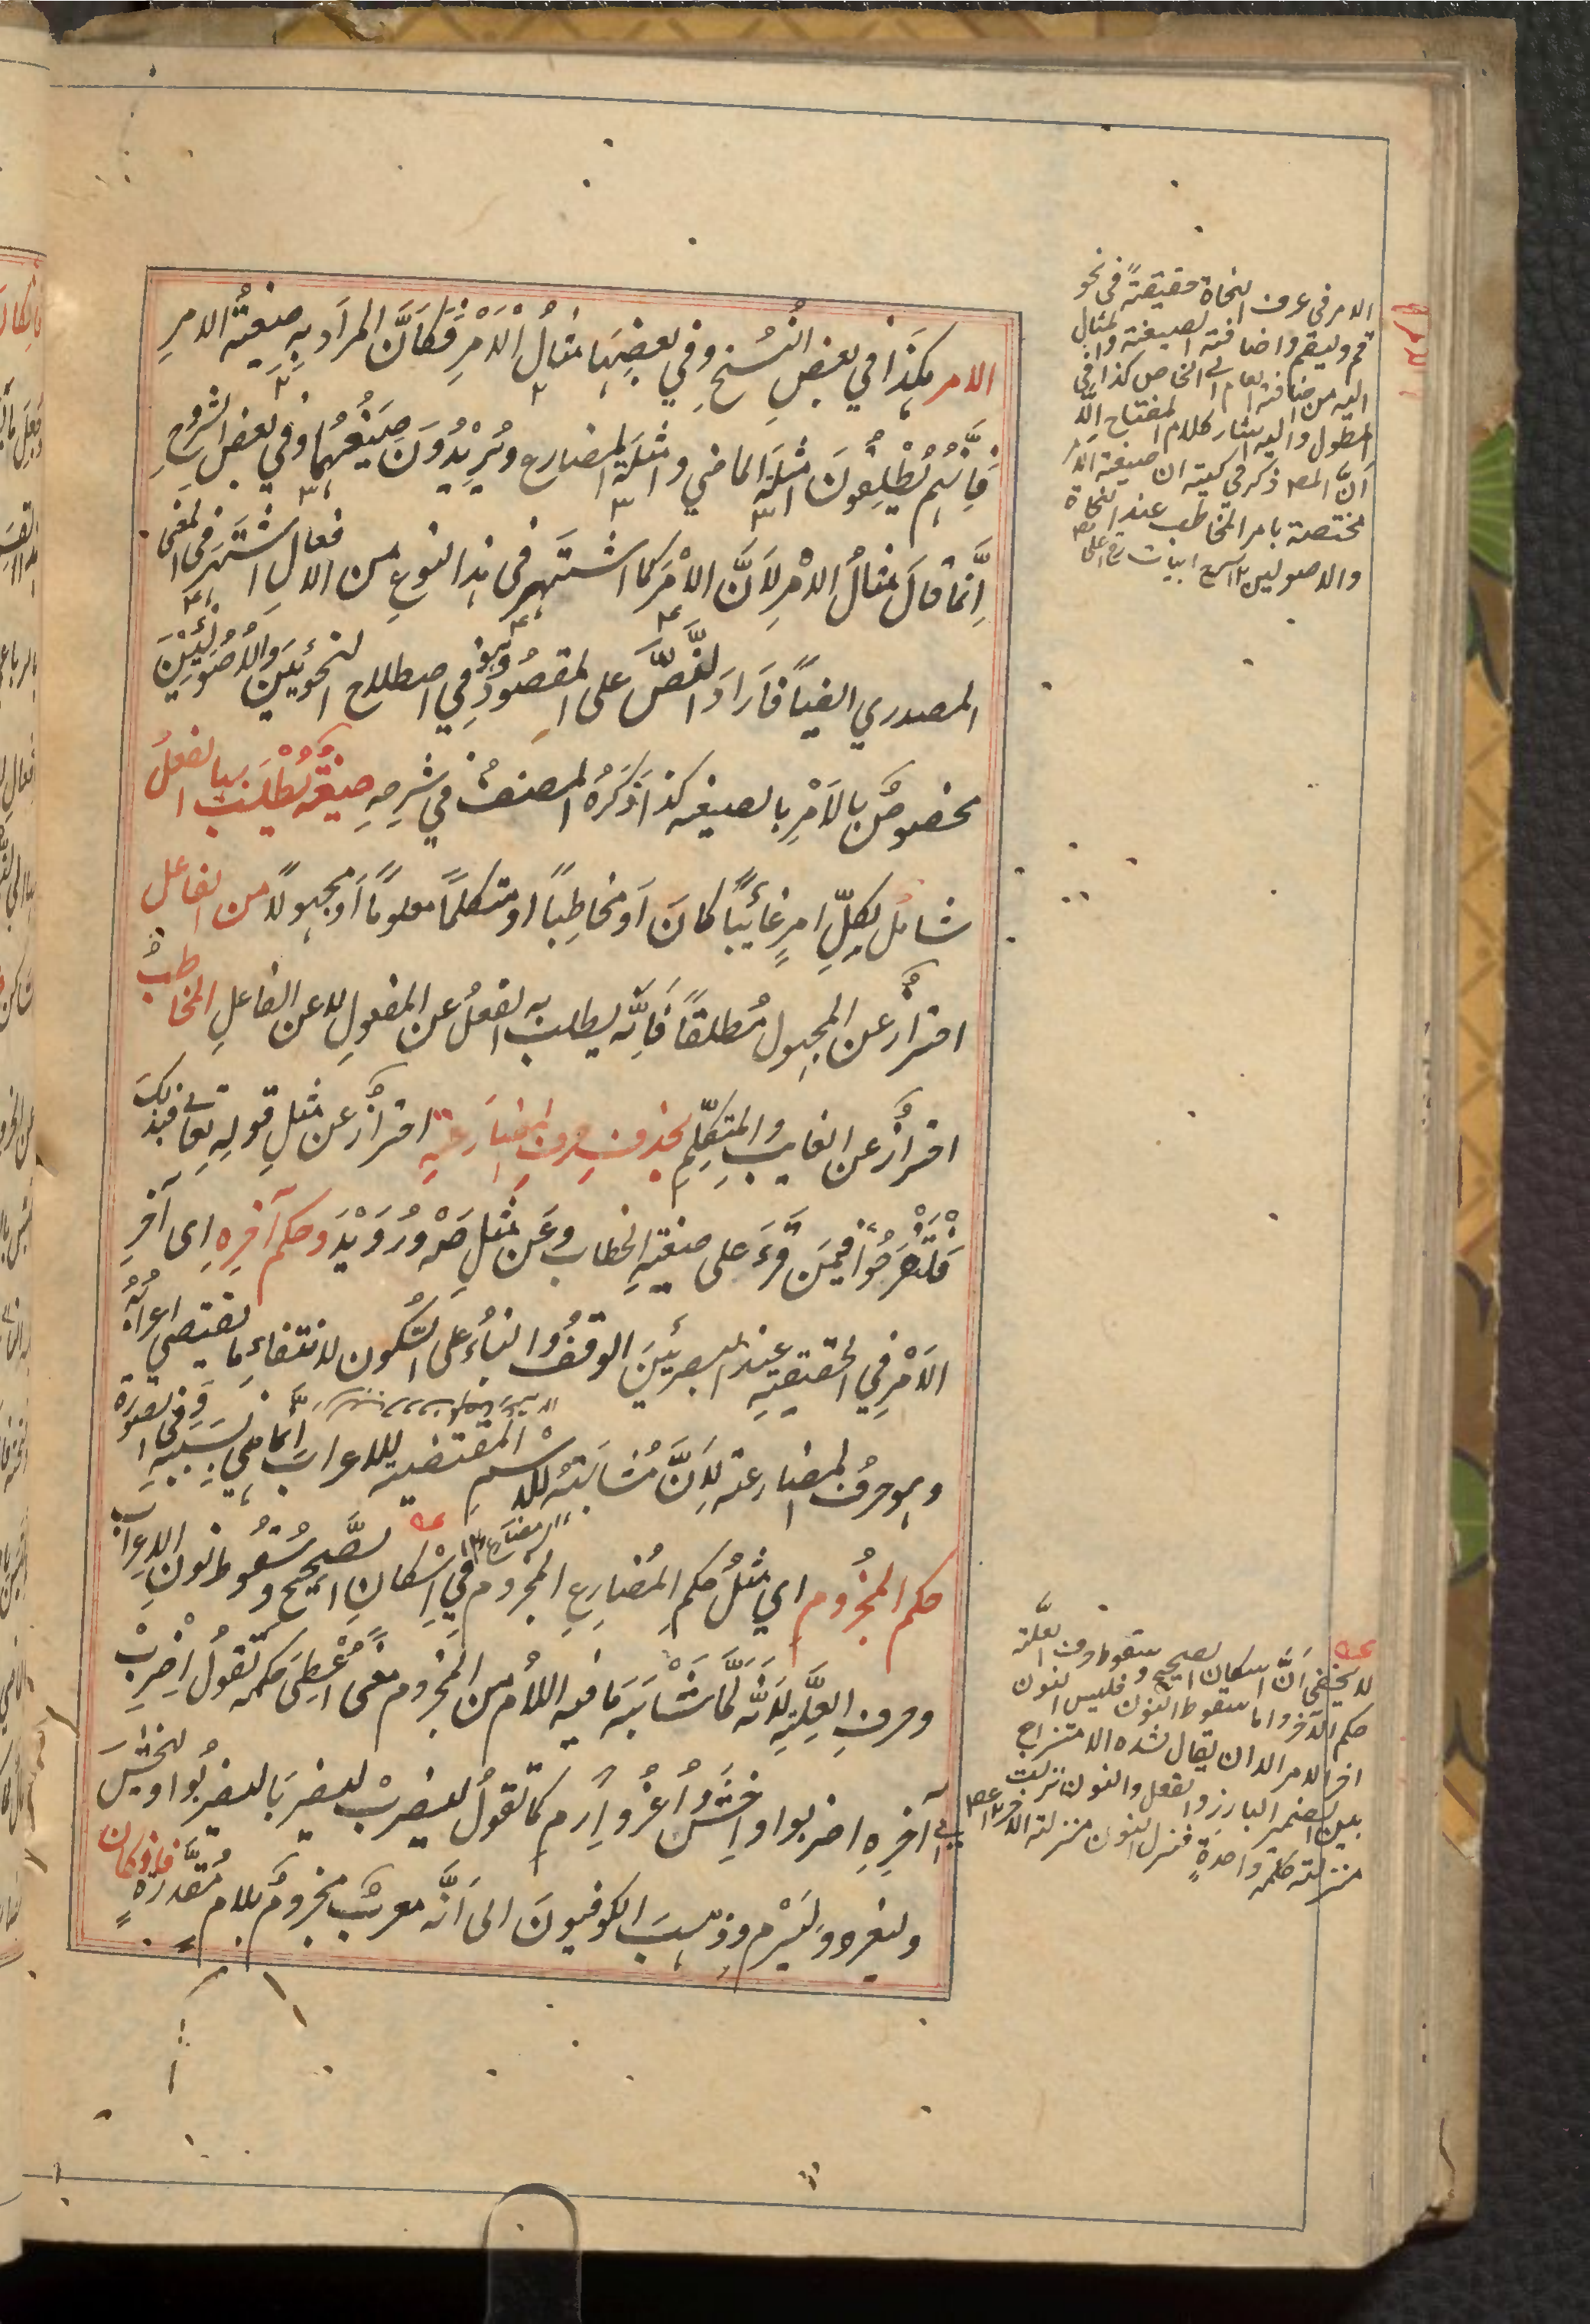 الامر هكذا في بعض النسخ وفي بعضها مثالُ الْاَمْرِ فكَاَنَّ المرادَ بِهِ صيغةُ الامرِ
فَاِنَّهُم يُطْلِقُونَ امثلةَ الماضي وامثلةَ المضارع ويُرِيْدُونَ صيغهُما وفي بعض الشروحِ
اِنَّما قالَ مثالُ الامْرِ لِاَنَّ الامْرَ كما اشتَهر في هذا النوعِ من الافعالِ اشتَهَر في المعنى
المصدري ايضًا فاَرادَ النَّصَّ على المقصُودِ وهو في اصطلاح النحويّينَ والاُصُوليّينَ
مخصوصٌ بالاَمْرِ بالصيغه كذا ذَكَرَهُ المصنفُ في شرحِهِ صيغةٌ يُطْلَبُ بها الفعلُ
شاملٌ لِكلِّ امرٍ غائبًا كانَ اَو مخاطبًا او متكلمًا معلومًا اَو مجهولًا من الفاعل
احترازٌ عن المجهول مُطلقًا فَاِنَّه يطلب به الفعلُ عن المفعولِ لا عن الفاعلِ المخاطبِ
احترازٌ عن الغايبِ والمتكلِّمِ بحذف حرفِ المضارعةِ احترازٌ عن مثلِ قولِهِ تعالى فبذلكَ
فَلْتَفْرَحُوْا فيمَن قَرَءَ على صيغةِ الخطاب وعَن مثلِ صَهْ ورُوَيْدَ وحكم آخرِهِ اى آخرِ
الاَمْرِ في الحقيقةِ عند البصريّينَ الوقفُ والبناءُ على السُّكون لانتفاءِ ما يقتضي اعرابَهُ
وهو حرفُ المضارعة لِاَنَّ مُشابهتَهُ للاسْمِ المقتضية للاعراب اِنَّما هي بسببِهِ وفي الصورة
حكم المجزُومِ اي مثلُ حكمِ المُضارِعِ المجزومِ في اِسْكانِ الصَّحيح وسُقُوطِ نونِ الاعراب
وحرفِ العِلَّةِ لِاَنَّه لمَّا شَابَهَ ما فيه اللامُ من المجزوم معنًى اُعْطِىَ حكمَه تقولُ اِضْرِبْ
اضربا اضربوا واِخْشَ واُغْزُ واِرْمِ كما تقولُ ليَضرِبْ ليضربَا ليضربُوا وليخشَ
وليغزُ وَلْيَرْمِ وذهبَ الكوفيونَ الى اَنَّه معربٌ مجزومٌ بلامٍ مُقَدَّرَةٍ فان كان
الامر في عرف النحاة حقيقةً في نحو
قم وليقم واضافته الصيغة والمثال
اليه من اضافة العام الى الخاص كذا في
المطول واليه اشار كلام المفتاح الا
اَنَّ المصـ ذكر في كتبه ان صيغة الامر
مختصة بامر المخاطب عند النحاة
والاصوليين ١٢
لا يخفى اَنَّ اسكان الصحيح وسقوط حرف العلة
حكم الآخر واما سقوط النون فليس النون
اخر الامر الا ان يقال لشدة الامتزاج
بين الضمير البارز والفعل والنون نزلت
منزلة كلمة واحدةٍ فنزل النون منزلة الآخر ١٢ عصـ